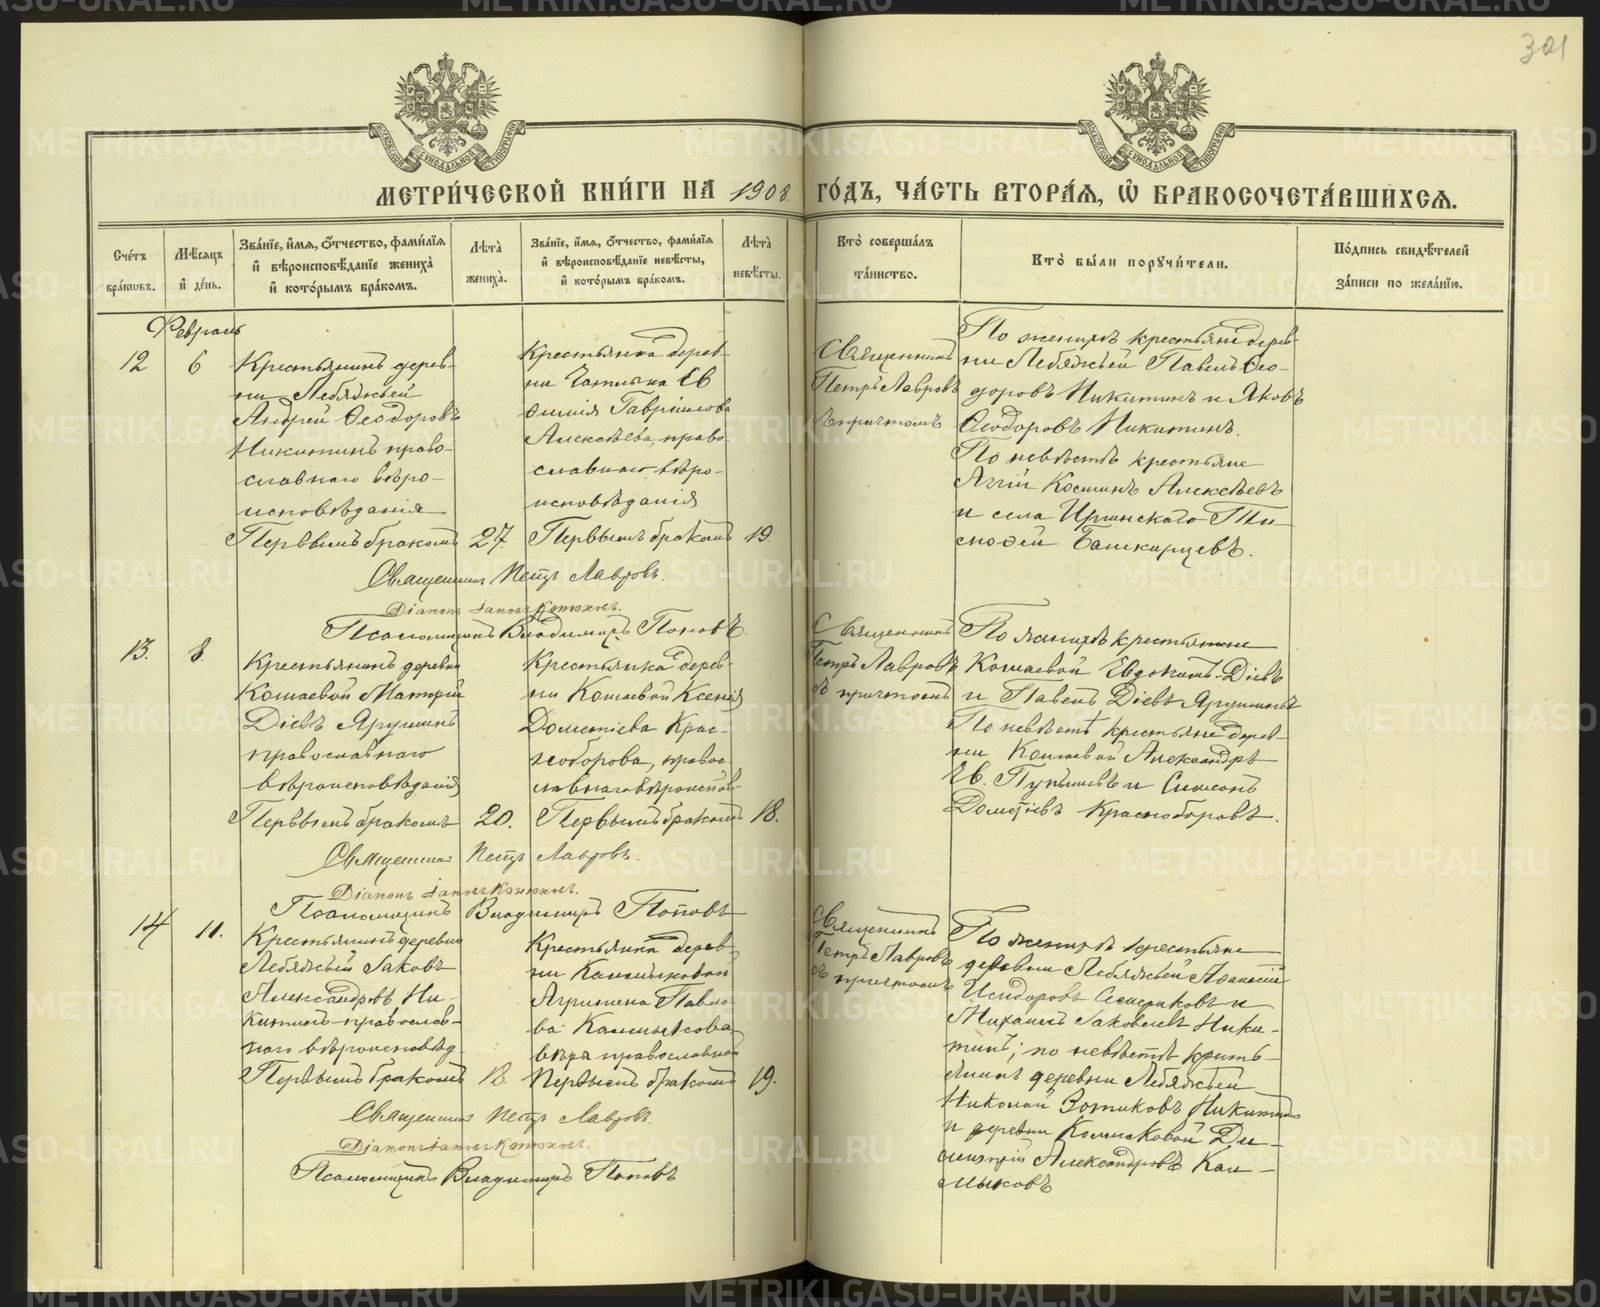 301
МЕТРИ́ЧЕСКОЙ КНИ́ГИ НА 1908 ГО́ДЪ, ЧА́СТЬ ВТОРА́Я, Ѽ БРАКОСОЧЕТА́ВШИХСЯ.
Сче́тъ бра́кѡвъ.
Мѣ́сяцъ и҆ де́нь.
Зва́нїе, и҆́мя, ѻ҆́тчество, фами́лїя и҆ вѣроисповѣ́данїе жениха̀ и҆ кото́рымъ бра́комъ.
Лѣ́та жениха̀.
Зва́нїе, и҆́мя, ѻ҆́тчество, фами́лїя и҆ вѣроисповѣ́данїе невѣ́сты, и҆ кото́рымъ бра́комъ.
Лѣ́та невѣ́сты.
Кто̀ соверша́лъ та́инство.
Кто̀ бы́ли порꙋчи́тели.
По́дпись свидѣ́телей за́писи по жела́нїю.
Февраль
12
6
Крестьянинъ дерев-
ни Лебяжьей
Андрей Ѳеодоровъ
Никитинъ право-
славнаго вѣро-
исповѣданія
Первымъ бракомъ
27.
Крестьянка дерев-
ни
Гавріилова
Алексѣева, право-
славнаго вѣро-
исповѣданія
Первымъ бракомъ
19.
Священникъ
Петръ Лавровъ
съ причтомъ
По женихѣ крестьяне дерев-
ни Лебяжьей Павелъ Ѳео-
доровъ Никитинъ и Яковъ
Ѳеодоровъ Никитинъ.
По невѣстѣ крестьяне
Косминъ Алексѣевъ
и села Иргинскаго Ти-
моѳей Башкирцевъ.
Священникъ Петръ Лавровъ.
Діаконъ
Псаломщикъ Владимиръ Поповъ.
13.
8.
Крестьянинъ деревни
Кошаевой Матѳій
Діевъ Ярушинъ
православнаго
вѣроисповѣданія
Первымъ бракомъ
20.
Крестьянка дерев-
ни Кошаевой Ксенія
Дометіева Крас-
ноборова, право-
славнаго вѣроиспов.
Первымъ бракомъ
18.
Священникъ
Петръ Лавровъ
съ причтомъ
По женихѣ крестьяне
Кошаевой Евдокимъ Діевъ
и Павелъ Діевъ Ярушинъ
По невѣстѣ крестьяне дерев-
ни Кошаевой Александръ
Ев. и Симеонъ
Дометіевъ Красноборовъ.
Священникъ Петръ Лавровъ.
Діаконъ
Псаломщикъ Владимиръ Поповъ
14
11.
Крестьянинъ деревни
Лебяжьей Іаковъ
Александровъ Ни-
китинъ православ-
наго вѣроисповѣд.
Первымъ бракомъ
18.
Крестьянка дерев-
ни Калмыковой
Агрипена Павло-
ва Калмыкова
вѣры православной
Первымъ бракомъ
19.
Священникъ
Петръ Лавровъ
съ причтомъ
По женихѣ крестьяне
деревни Лебяжьей Аѳанасій
Исидоровъ и
Михаилъ Іаковлевъ Ники-
тинъ; по невѣстѣ кресть-
яне деревни Лебяжьей
Николай Зотиковъ Никитинъ
и деревни Калмыковой Ди-
митрій Александровъ Кал-
мыковъ
Священникъ Петръ Лавровъ.
Діаконъ
Псаломщикъ Владимиръ Поповъ
METRIKI.GASO-URAL.RU